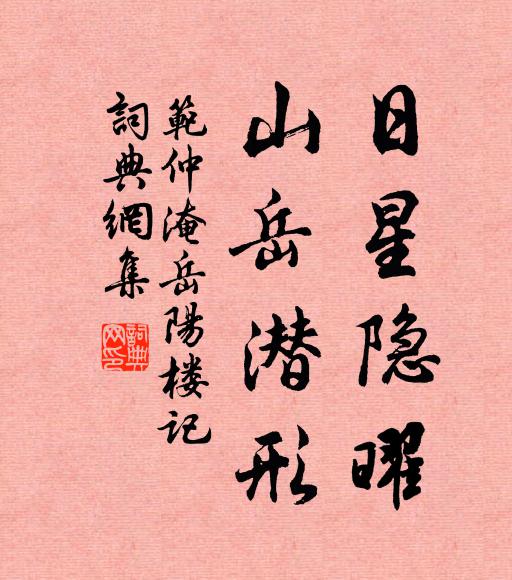 日星隐曜
山岳潜形
範仲淹岳陽楼记
詞典網集
詞典
网印